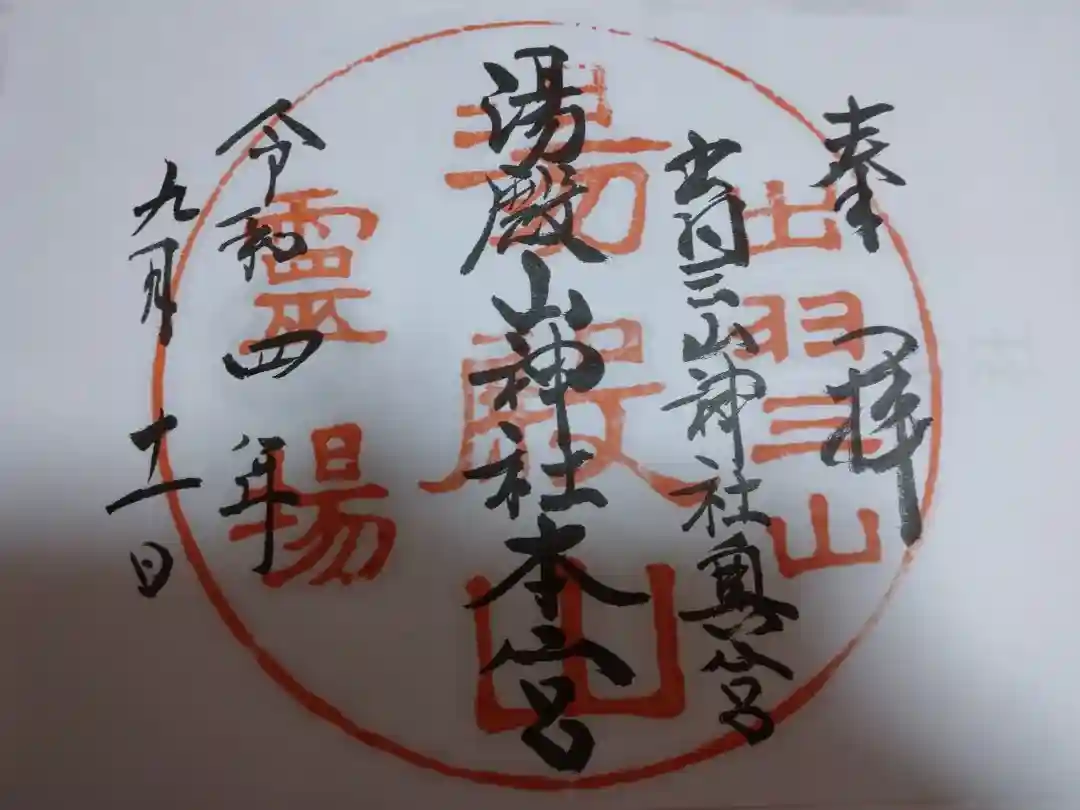 奉拝
出羽三山神社奥宮
湯殿山神社本宮
令和四年
九月十一日
出羽三山
湯殿山
霊場